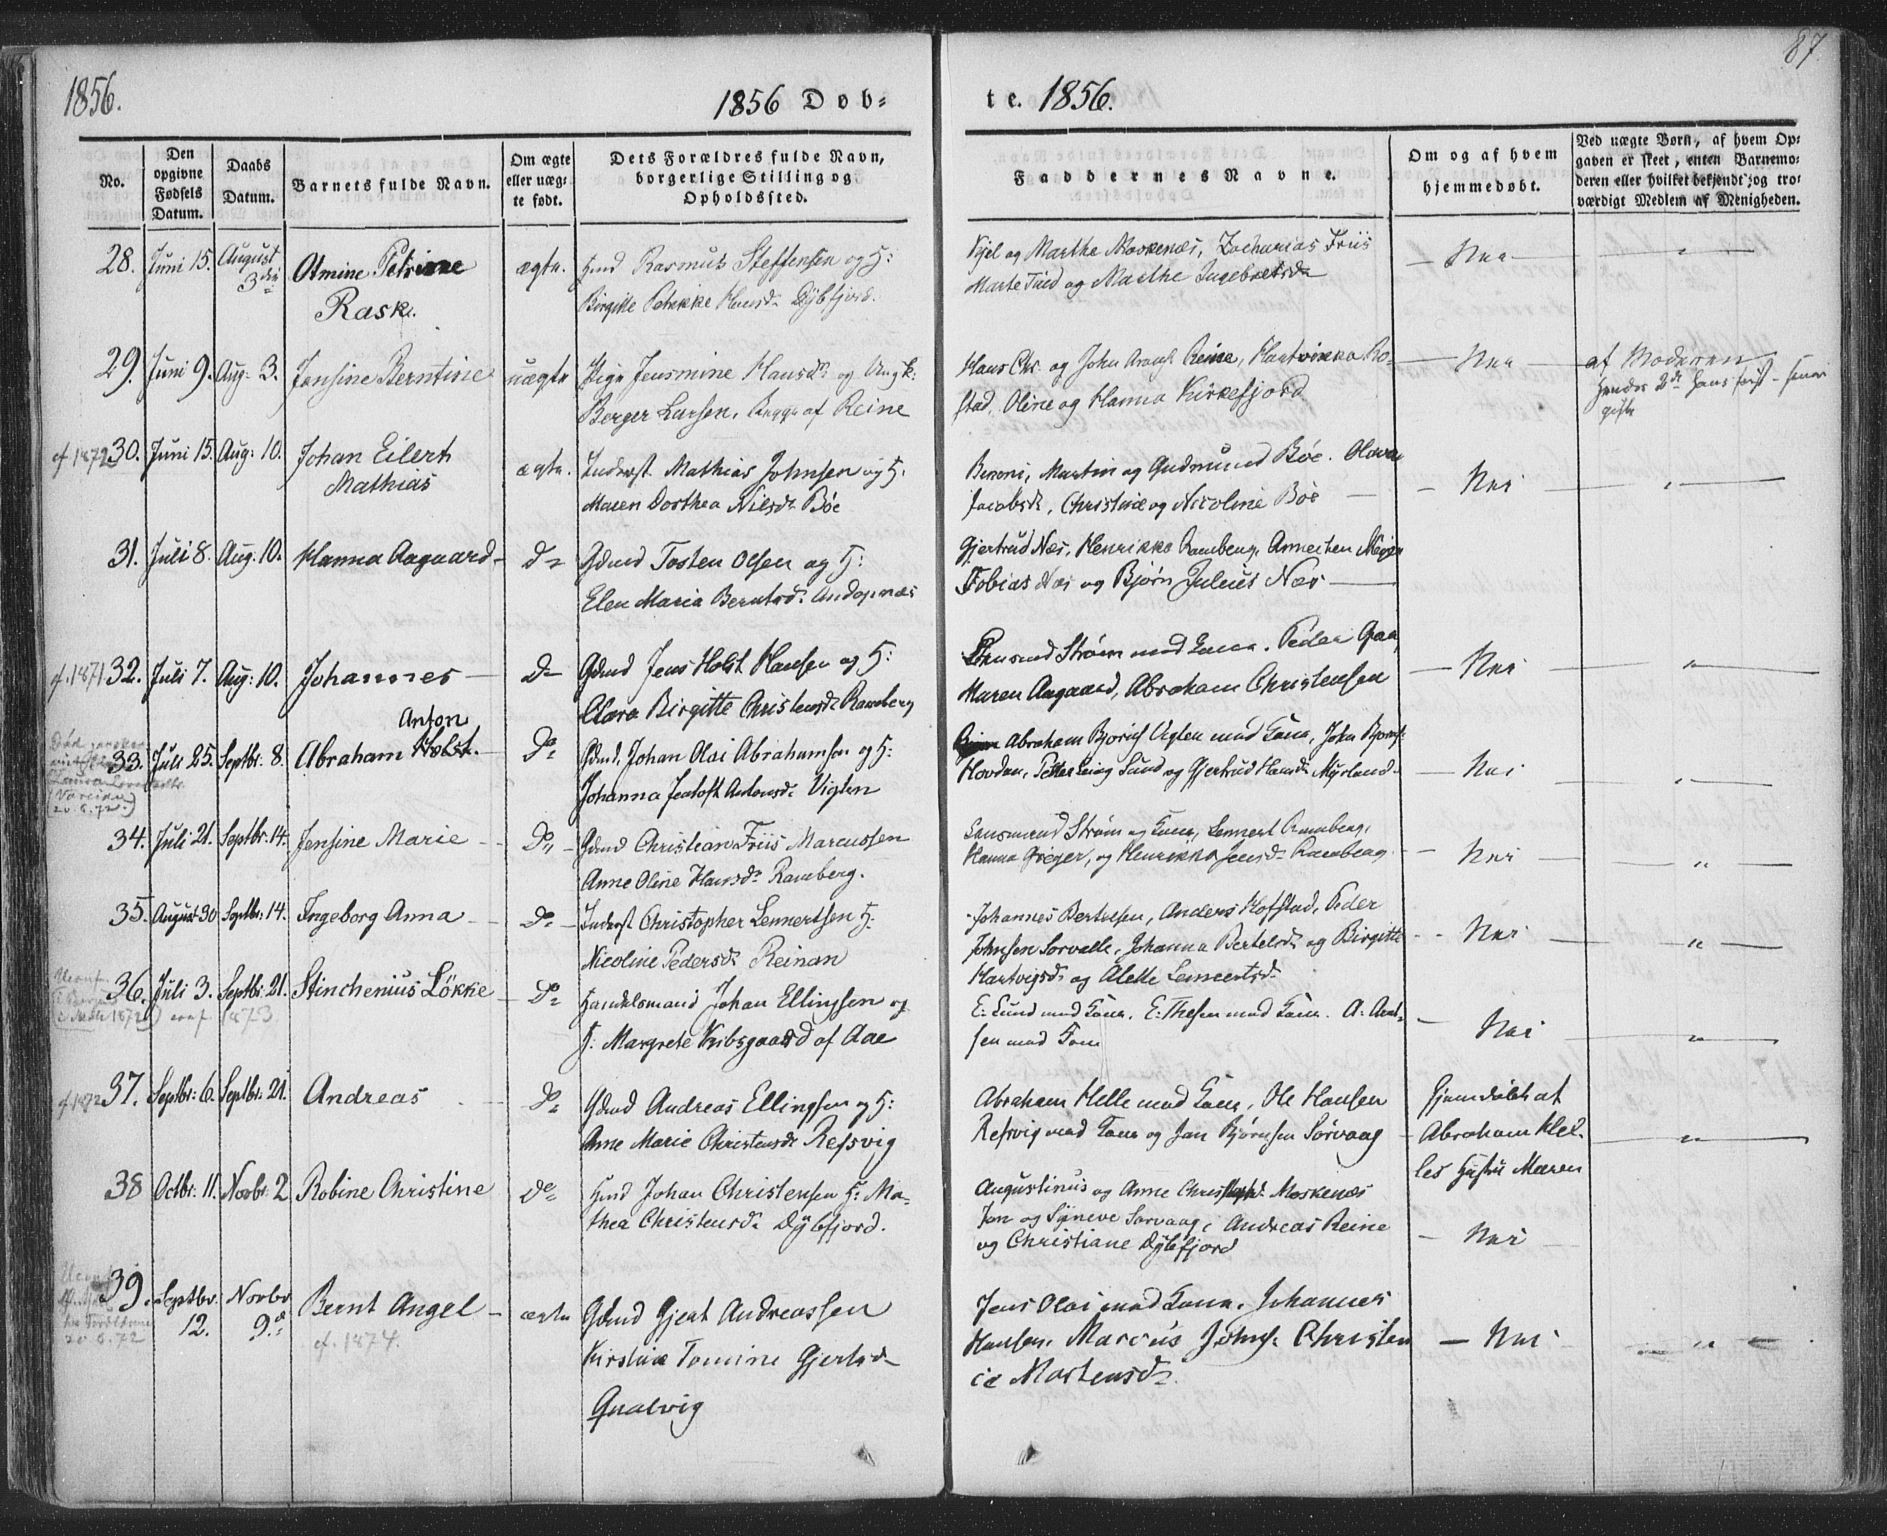 87
1856.
1856 Døb-
te. 1856.
No.
Den opgivne Fødsels Datum.
Daabs Datum.
Barnets fulde Navn.
Om ægte eller uæg-
te født.
Dets Forældres fulde Navn,
borgerlige Stilling og
Opholdssted.
Faddernes Navne.
Om og af hvem
hjemmedøbt.
Ved uægte Børn, af hvem Op-
gaven er skeet, enten Barnemo-
deren eller hvilket bekjendt og tro-
værdigt Medlem af Menigheden.
28. Juni 15. August 3die Otmine Petrine ægte. Hmd Rasmus Steffensen og H:
Rask. Birgitte Petrikke Hansd. Dybfjord.
Kjel og Marthe Moskenæs, Zacharias Friis
Marte Fred og Marthe Ingebretsd. Nei "
29. Juni 9. Aug: 3. Jensine Berntine uægte Pige Jensmine Hansd. og Ungk:
Berger Larsen, Begge af Reine
Hans Chr. og John Reine, Hartvikka Ro-
stad, Oline og Hanna Kirkefjord Nei af Moderen
Hendes 2d hans først
gifte
cf 1872 30. Juni 15. Aug: 10. Johan Eilert ægte. Inderst Mathias Johnsen og H.
Mathias Maren Dorthea Nilsd. Bøe
Benoni, Martin og Gudmund Bøe. Olava
Jacobsd., Christine og Nicoline Bøe Nei "
31. Juli 8. Aug. 10. Hanna Aagaard Do Gdmd Tosten Olsen og H:
Elen Maria Berntsd. Andopnæs
Gjertrud Næs, Henrikke Ramberg, Annesten Meyer
Tobias Næs og Bjørn Julius Næs
cf. 1871 32. Juli 7. Aug: 10. Johannes Do Gdmd Jens Holst Hansen og H:
Clara Birgitte Christensd. Ramberg
Strøm med Kone. Peder Gaa
Maren Aagaard, Abraham Christensen Nei "
33. Juli 25. Septbr: 8. Abraham Anton Holst. Do Gdmd. Johan Olai Abrahamsen og H:
Johanna Jentoft Antonsd. Vigten
20.6.72.
Abraham Bjørns Vigten med Kone, John Bjørns.
Hovden, Petter Sund og Gjertrud Hansd. Myrland. Nei "
34. Juli 21. Septbr. 14. Jensine Marie Do Gdmd Christian Friis Marcussen
Anne Oline Hansd. Ramberg.
Lensmand Strøm og Kone, Lennert Ramberg,
Hanna Greger, og Henrikka Jensd. Ramberg Nei "
35. August 30 Septbr: 14. Ingeborg Anna Do Inderst Christopher Lennertsen H.
Nicoline Pedersd. Reinan
Johannes Bertelsen, Anders Hofstad, Peder
Johnsen Sorvalle, Johanna Bertelsd. og Birgitte
Hartvigsd. og Alette Lennertsd. Nei "
36. Juli 3. Septbr: 21. Stinchenius Løkke Do Handelsmand Johan Ellingsen og
H. Margrete Kribsgaard af Aae
conf 1873
E. Lund med Kone, E. Thesen med Kone. A.
sen med Kone Nei "
cf 1872 37. Septbr: 6. Septbr: 21. Andreas Do Gdmd Andreas Ellingsen og H:
Anne Marie Christensd. Refsvig
Abraham Helle med Kone, Ole Hansen
Refsvig med Kone og Jan Bjørnsen Sørvaag
Hjemdøbt af
Abraham Hel-
les Hustru Maren "
38 Octbr. 11. Novbr. 2 Robine Christine Do Hmd Johan Christensen H: Ma-
thea Christensd. Dybfjord.
Augustinus og Anne Christophd. Moskenæs
Jon og Syneve Sørvaag, Andreas Reine
og Christiane Dybfjord Nei
39. Septbr 12. Novbr 9de Bernt Angel ægte Gdmd Gjert Andreassen
cf. 1874. Kirstine Tomine Gjertsd.
20.6.72
Qvalvig
Jens Olai med Kone, Johannes
Hansen, Marcus Johns. Christen
ie Mortensd. Nei "